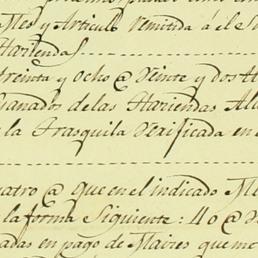 Mes y Articulo remitida á el S
Haziendas
treinta y ocho @ veinte y dos
Ganados de las Haziendas Al
la Trasquila verificada en
atro @ que en el indicado Me
la forma Siguiente: 40 @ 
adas en pago de Maires que me